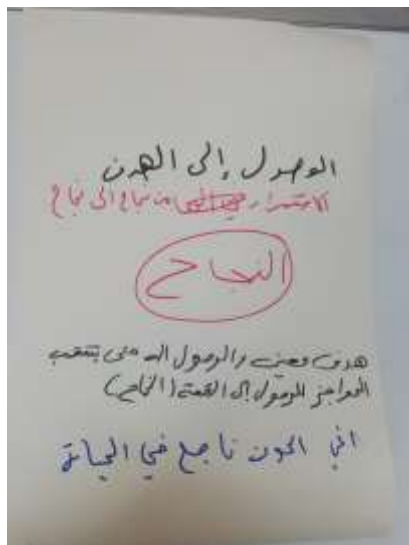 الوصول إلى الهدف
الاستمرار من نجاح الى نجاح
النجاح
هدف معين والوصول اله متى بتتعب
الحواجز للوصول إلى القمة (النجاح)
اني اكون ناجح في الحياة